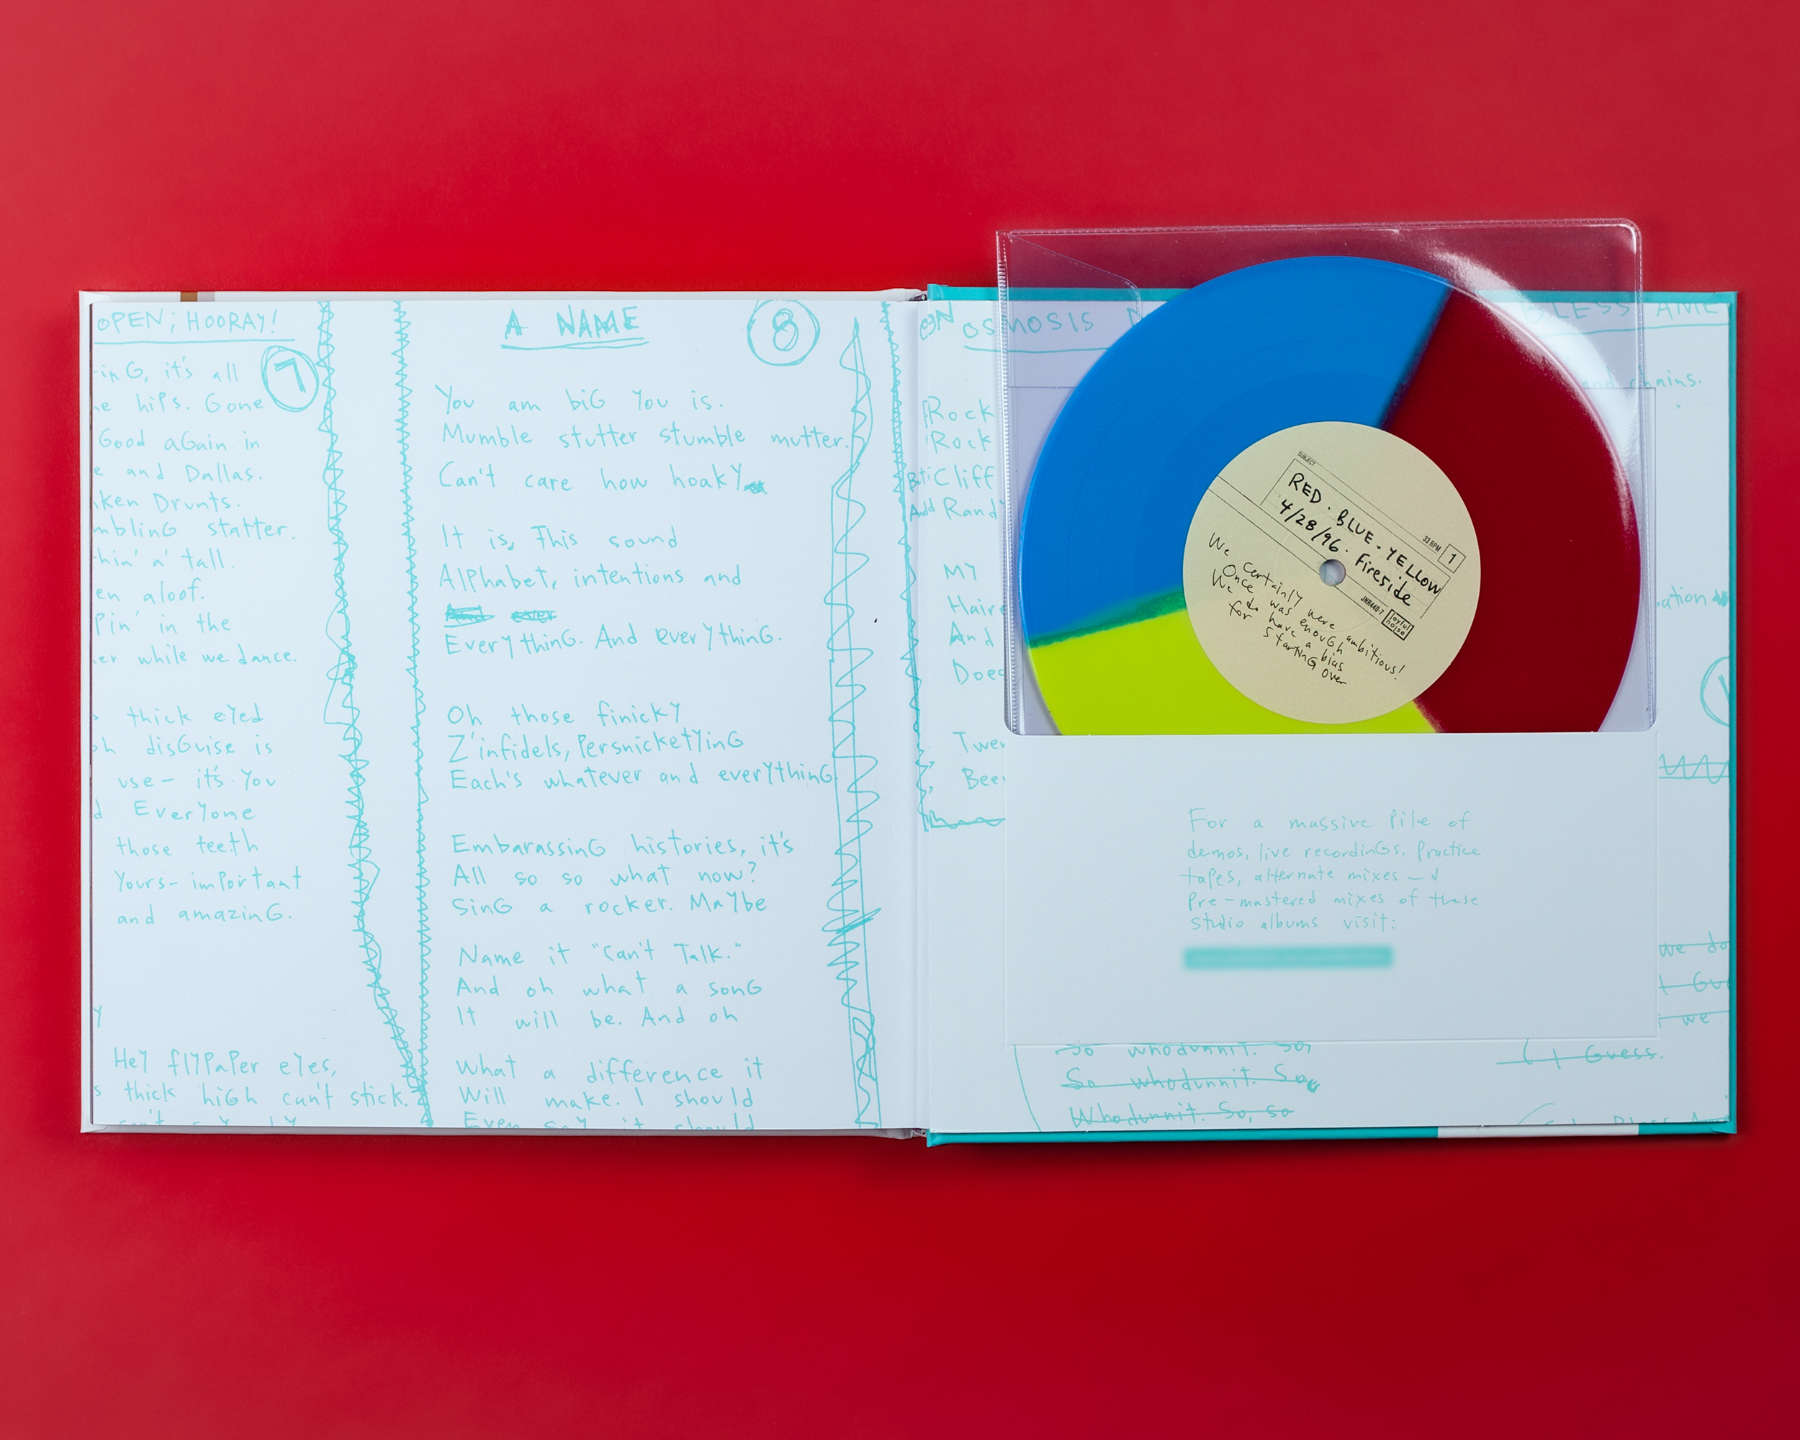 OPEN; HOORAY!
7
inG, it's all
hips. Gone
Good aGain in
and Dallas.
Drunts.
statter.
thin' a' tall.
aloof.
in the
while we dance.
thick eyed
disGuise is
use - it's you
Everyone
those teeth
Yours - important
and amazinG.
Hey flypaper eyes,
thick hiGh can't stick.
A NAME
8
You am biG You is.
Mumble stutter stumble mutter.
Can't care how hoaky
It is, This sound
Alphabet, intentions and
EverythinG. And everythinG.
Oh those finicky
Z'infidels, PersnicketyinG
Each's whatever and everythinG
EmbarassinG histories, it's
All so so what now?
SinG a rocker. Maybe
Name it "Can't Talk."
And oh what a sonG
It will be. And oh
What a difference it
Will make. I should
Even say it should
OSMOSIS
Rock
Rock
Cliff
Add Rand
My
And
chains.
SUBJECT
RED · BLUE - YELLOW
4/28/96. Fireside
33 RPM
1
We certainly were ambitious!
Once was enouGh
We do have a bias
for startinG over
JNR440-7
joyful noise
For a massive Pile of
demos, live recordinGs, Practice
tapes, alternate mixes - &
Pre-mastered mixes of these
Studio albums visit:
we do
we
So whodunnit. So,
So whodunnit. So,
Whodunnit. So, so
Guess.